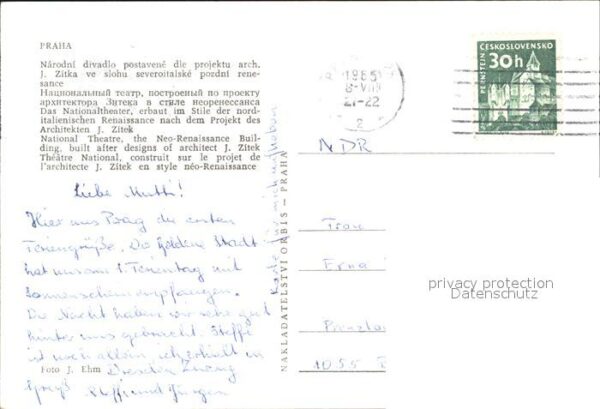 PRAHA
Národní divadlo postavené dle projektu arch.
J. Zítka ve slohu severoitalské pozdní rene-
sance
Национальный театр, построеный по проекту
архитектора Зитека в стиле неоренессанса
Das Nationaltheater, erbaut im Stile der nord-
italienischen Renaissance nach dem Projekt des
Architekten J. Zítek
National Theatre, the Neo-Renaissance Buil-
ding, built after designs of architect J. Zítek
Théâtre National, construit sur le projet de
l'architecte J. Zítek en style néo-Renaissance
Liebe Mutti!
Hier aus Prag die ersten
Feriengrüße. Die Goldene Stadt
hat uns am 1. Ferientag mit
Sonnenschein empfangen.
Die Nacht haben wir sehr gut
hinter uns gebracht. Steffi
ist noch allein, ich erhielt in
Dresden
Gruß Steffi und Jürgen
Foto J. Ehm
Karte für mich aufheben
NAKLADATELSTVÍ ORBIS - PRAHA
1965
21-22
2
ČESKOSLOVENSKO
30h
PERNŠTEJN
NDR
Frau
Erna
1055
privacy protection
Datenschutz